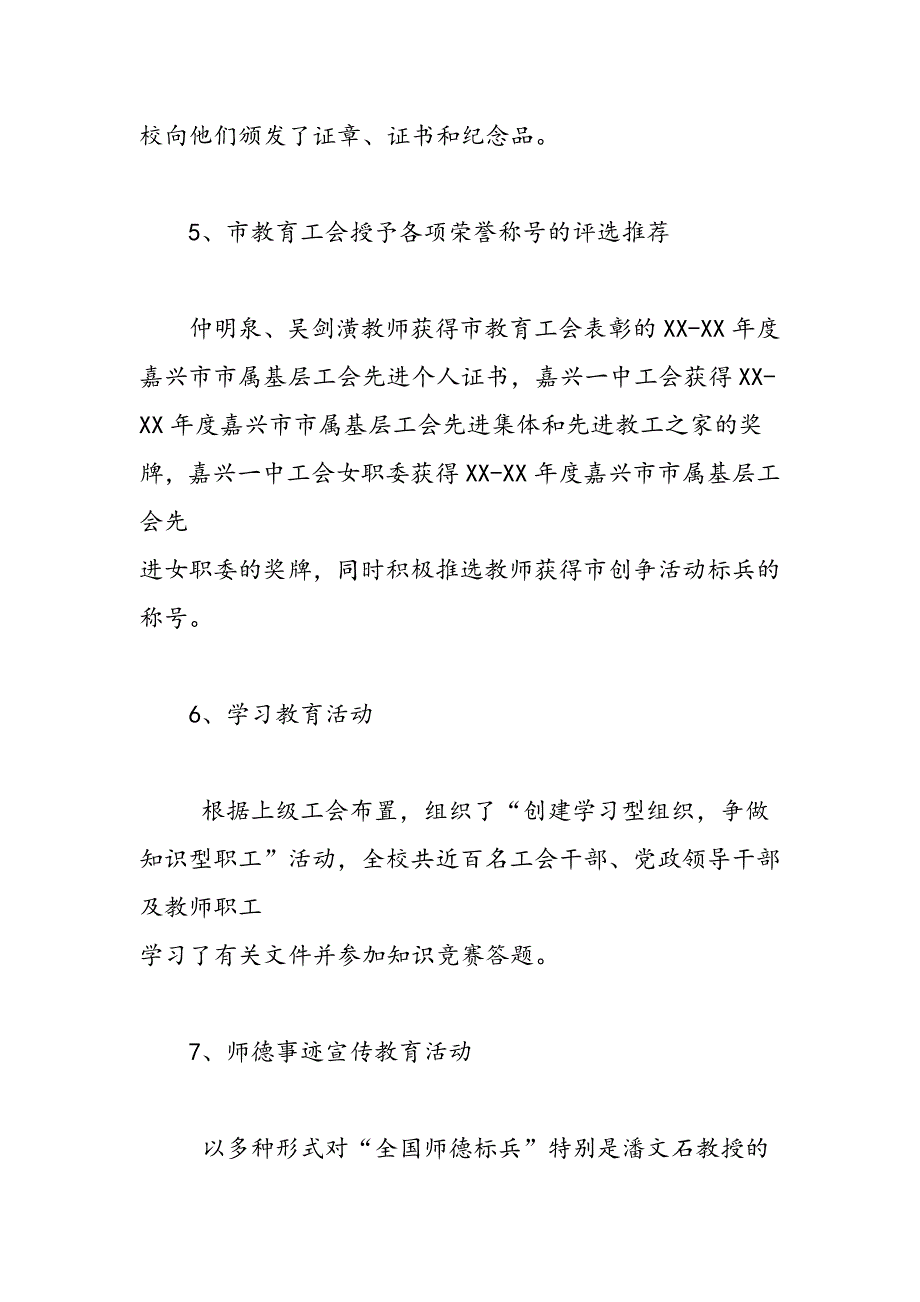 校向他们颁发了证章、证书和纪念品。
5、市教育工会授予各项荣誉称号的评选推荐
仲明泉、吴剑潢教师获得市教育工会表彰的 XX-XX 年度
嘉兴市市属基层工会先进个人证书，嘉兴一中工会获得 XX-
XX 年度嘉兴市市属基层工会先进集体和先进教工之家的奖
牌，嘉兴一中工会女职委获得 XX-XX 年度嘉兴市市属基层工
会先
进女职委的奖牌，同时积极推选教师获得市创争活动标兵的
称号。
6、学习教育活动
根据上级工会布置，组织了“创建学习型组织，争做
知识型职工”活动，全校共近百名工会干部、党政领导干部
及教师职工
学习了有关文件并参加知识竞赛答题。
7、师德事迹宣传教育活动
以多种形式对“全国师德标兵”特别是潘文石教授的